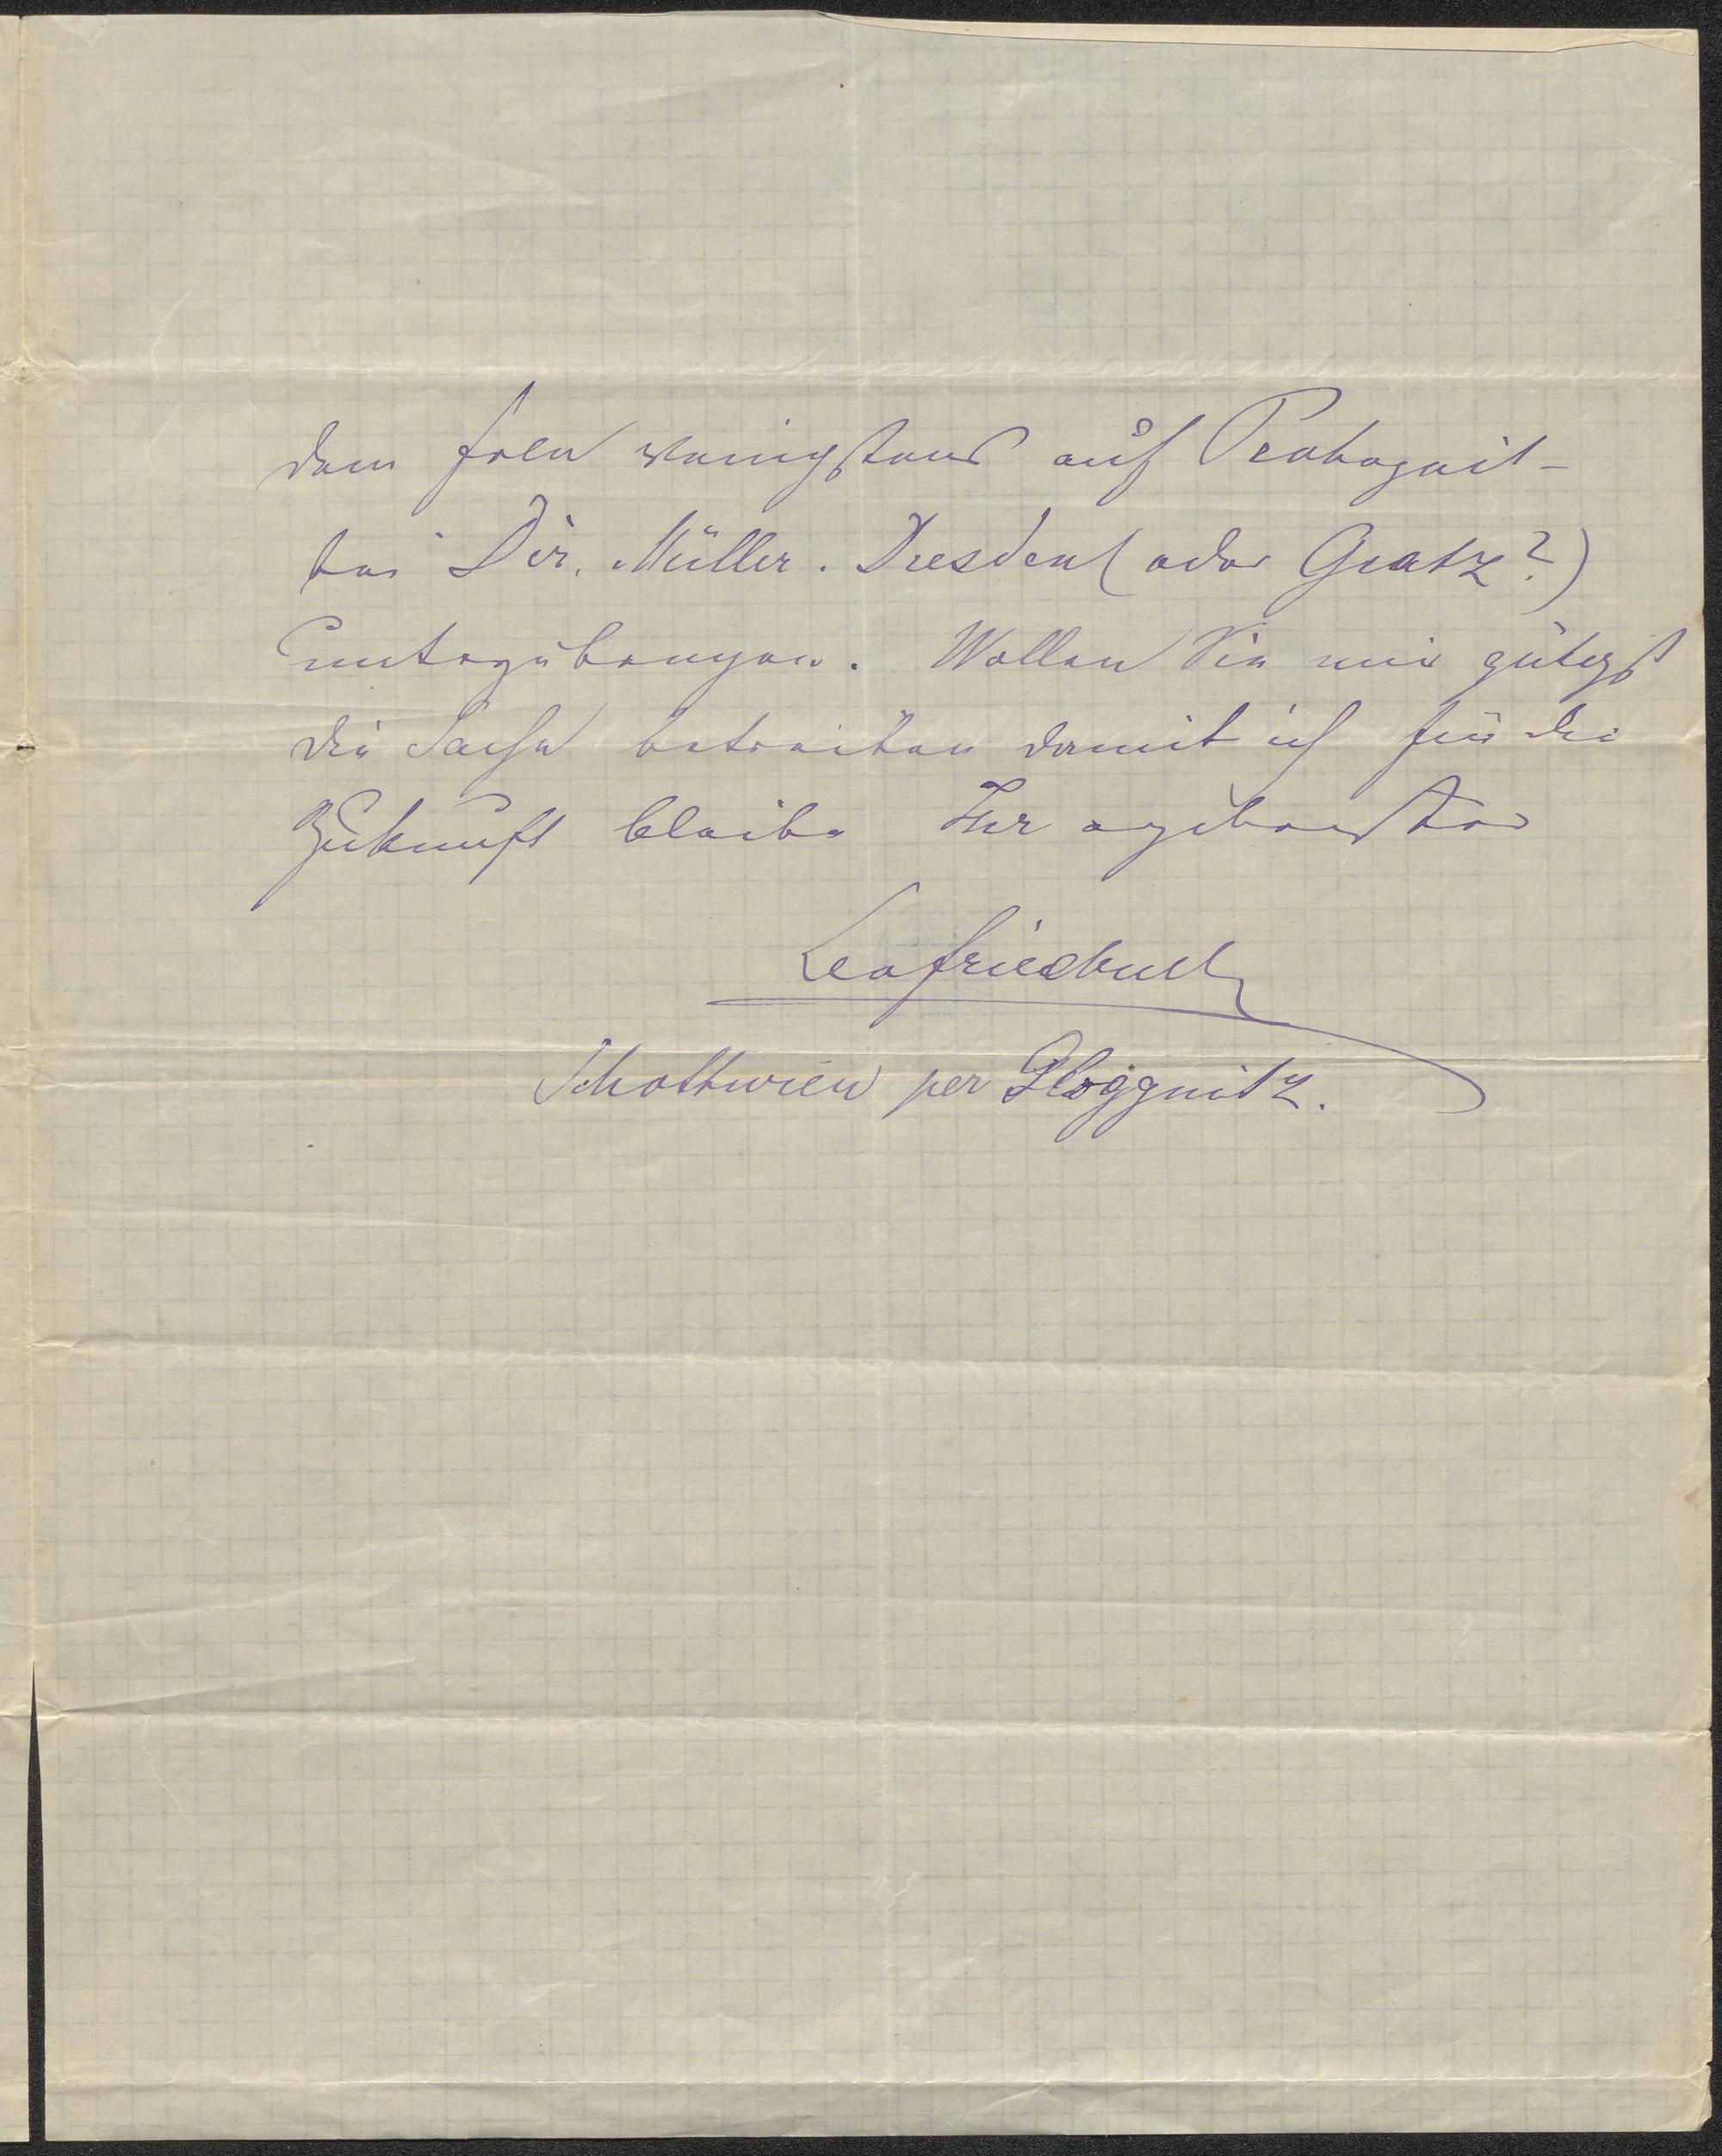 dem Frln wenigstens auf Probezeit-
bei Dir. Müller. Dresden (oder Gratz?)
unterzubringen. Wollen Sie mir gütigst
die Sache betreiben damit ich für die
Zukunft bleibe Ihr ergebenster
Leo Friedrich
Schottwien per Gloggnitz.